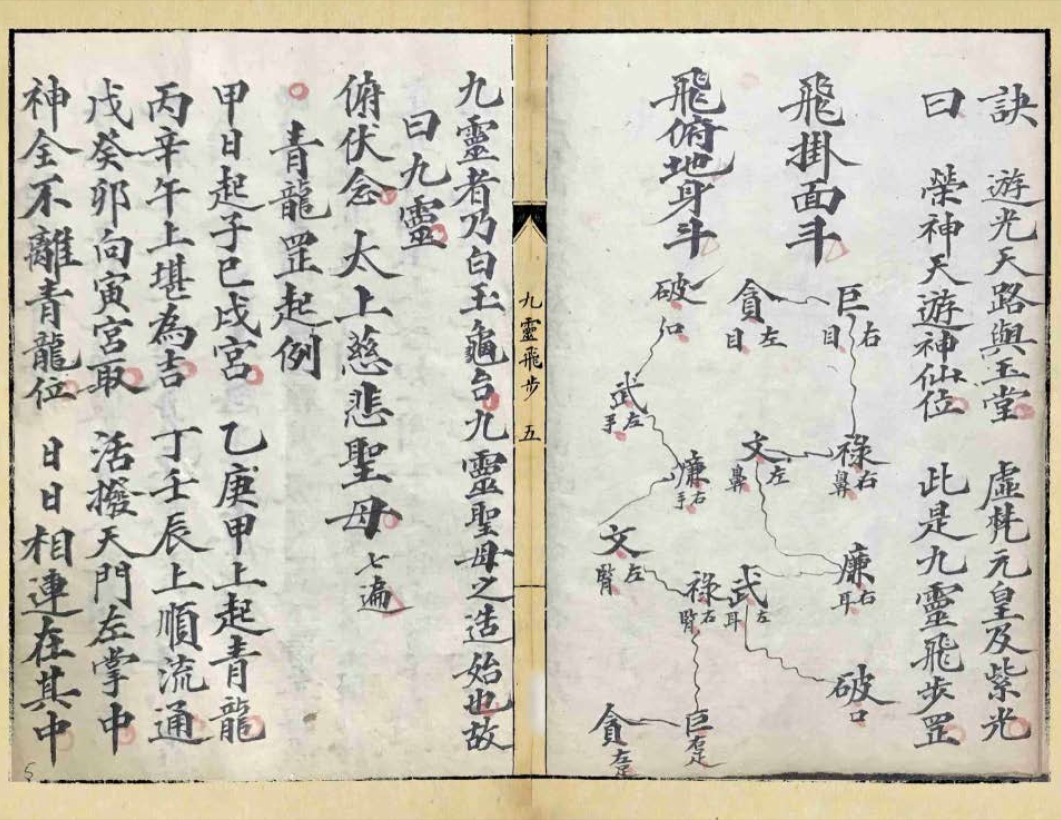 訣 遊光天路與玉堂 虛梵元皇及紫光
曰 榮神天遊神仙位 此是九靈飛步罡
飛掛面斗
巨 右目
貪 左目
祿 右鼻
文 左鼻
廉 右耳
武 左耳
破 口
飛俯地身斗
破 口
武 左手
廉 右手
文 左腎
祿 右腎
巨 右足
貪 左足
九靈飛步 五
九靈者乃白玉龜台九靈聖母之造始也故
曰九靈
俯伏念 太上慈悲聖母 七遍
青龍罡起例
甲日起子巳戌宮 乙庚甲上起青龍
丙辛午上堪為吉 丁壬辰上順流通
戊癸卯向寅宮取 活撥天門左掌中
神全不離青龍位 日日相連在其中
5